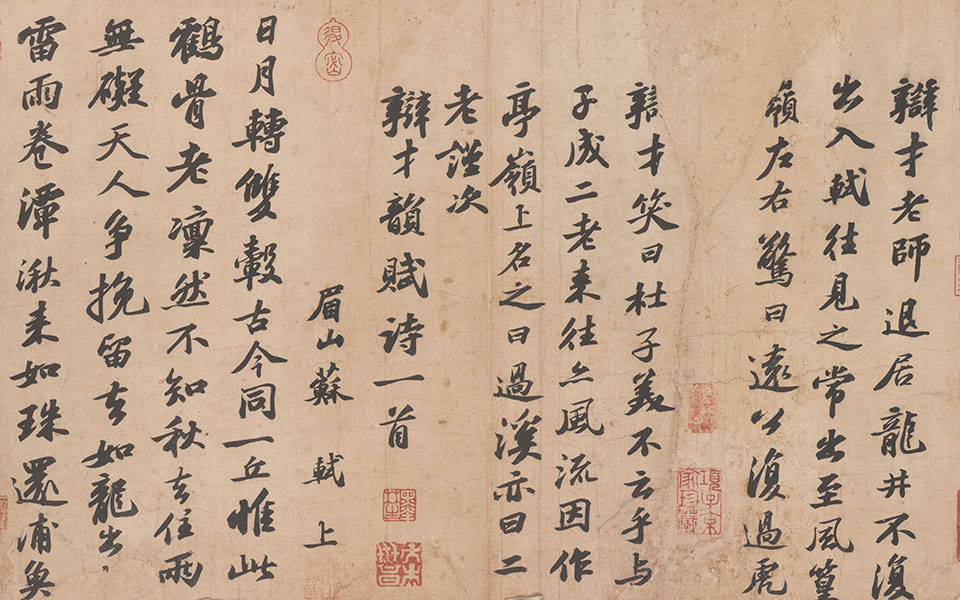 辯才老師退居龍井不復
出入軾往見之常出至風篁
嶺左右驚曰遠公復過虎
辯才笑曰杜子美不云乎与
子成二老来往亦風流因作
亭嶺上名之曰過溪亦曰二
老謹次
辯才韻賦詩一首
眉山蘇軾上
日月轉雙轂古今同一丘惟此
鶴骨老凜然不知秋去住兩
無礙天人争挽留去如龍出
雷雨卷潭湫来如珠還浦魚